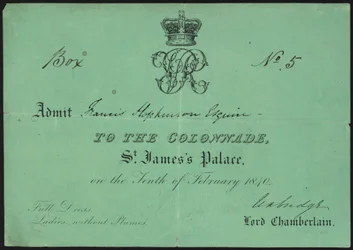 Box
No. 5
VR
Admit Francis Stephenson Esquire
TO THE COLONNADE,
St. James's Palace,
on the Tenth of February 1840.
Uxbridge
Full Dress
Ladies without Plumes
Lord Chamberlain.